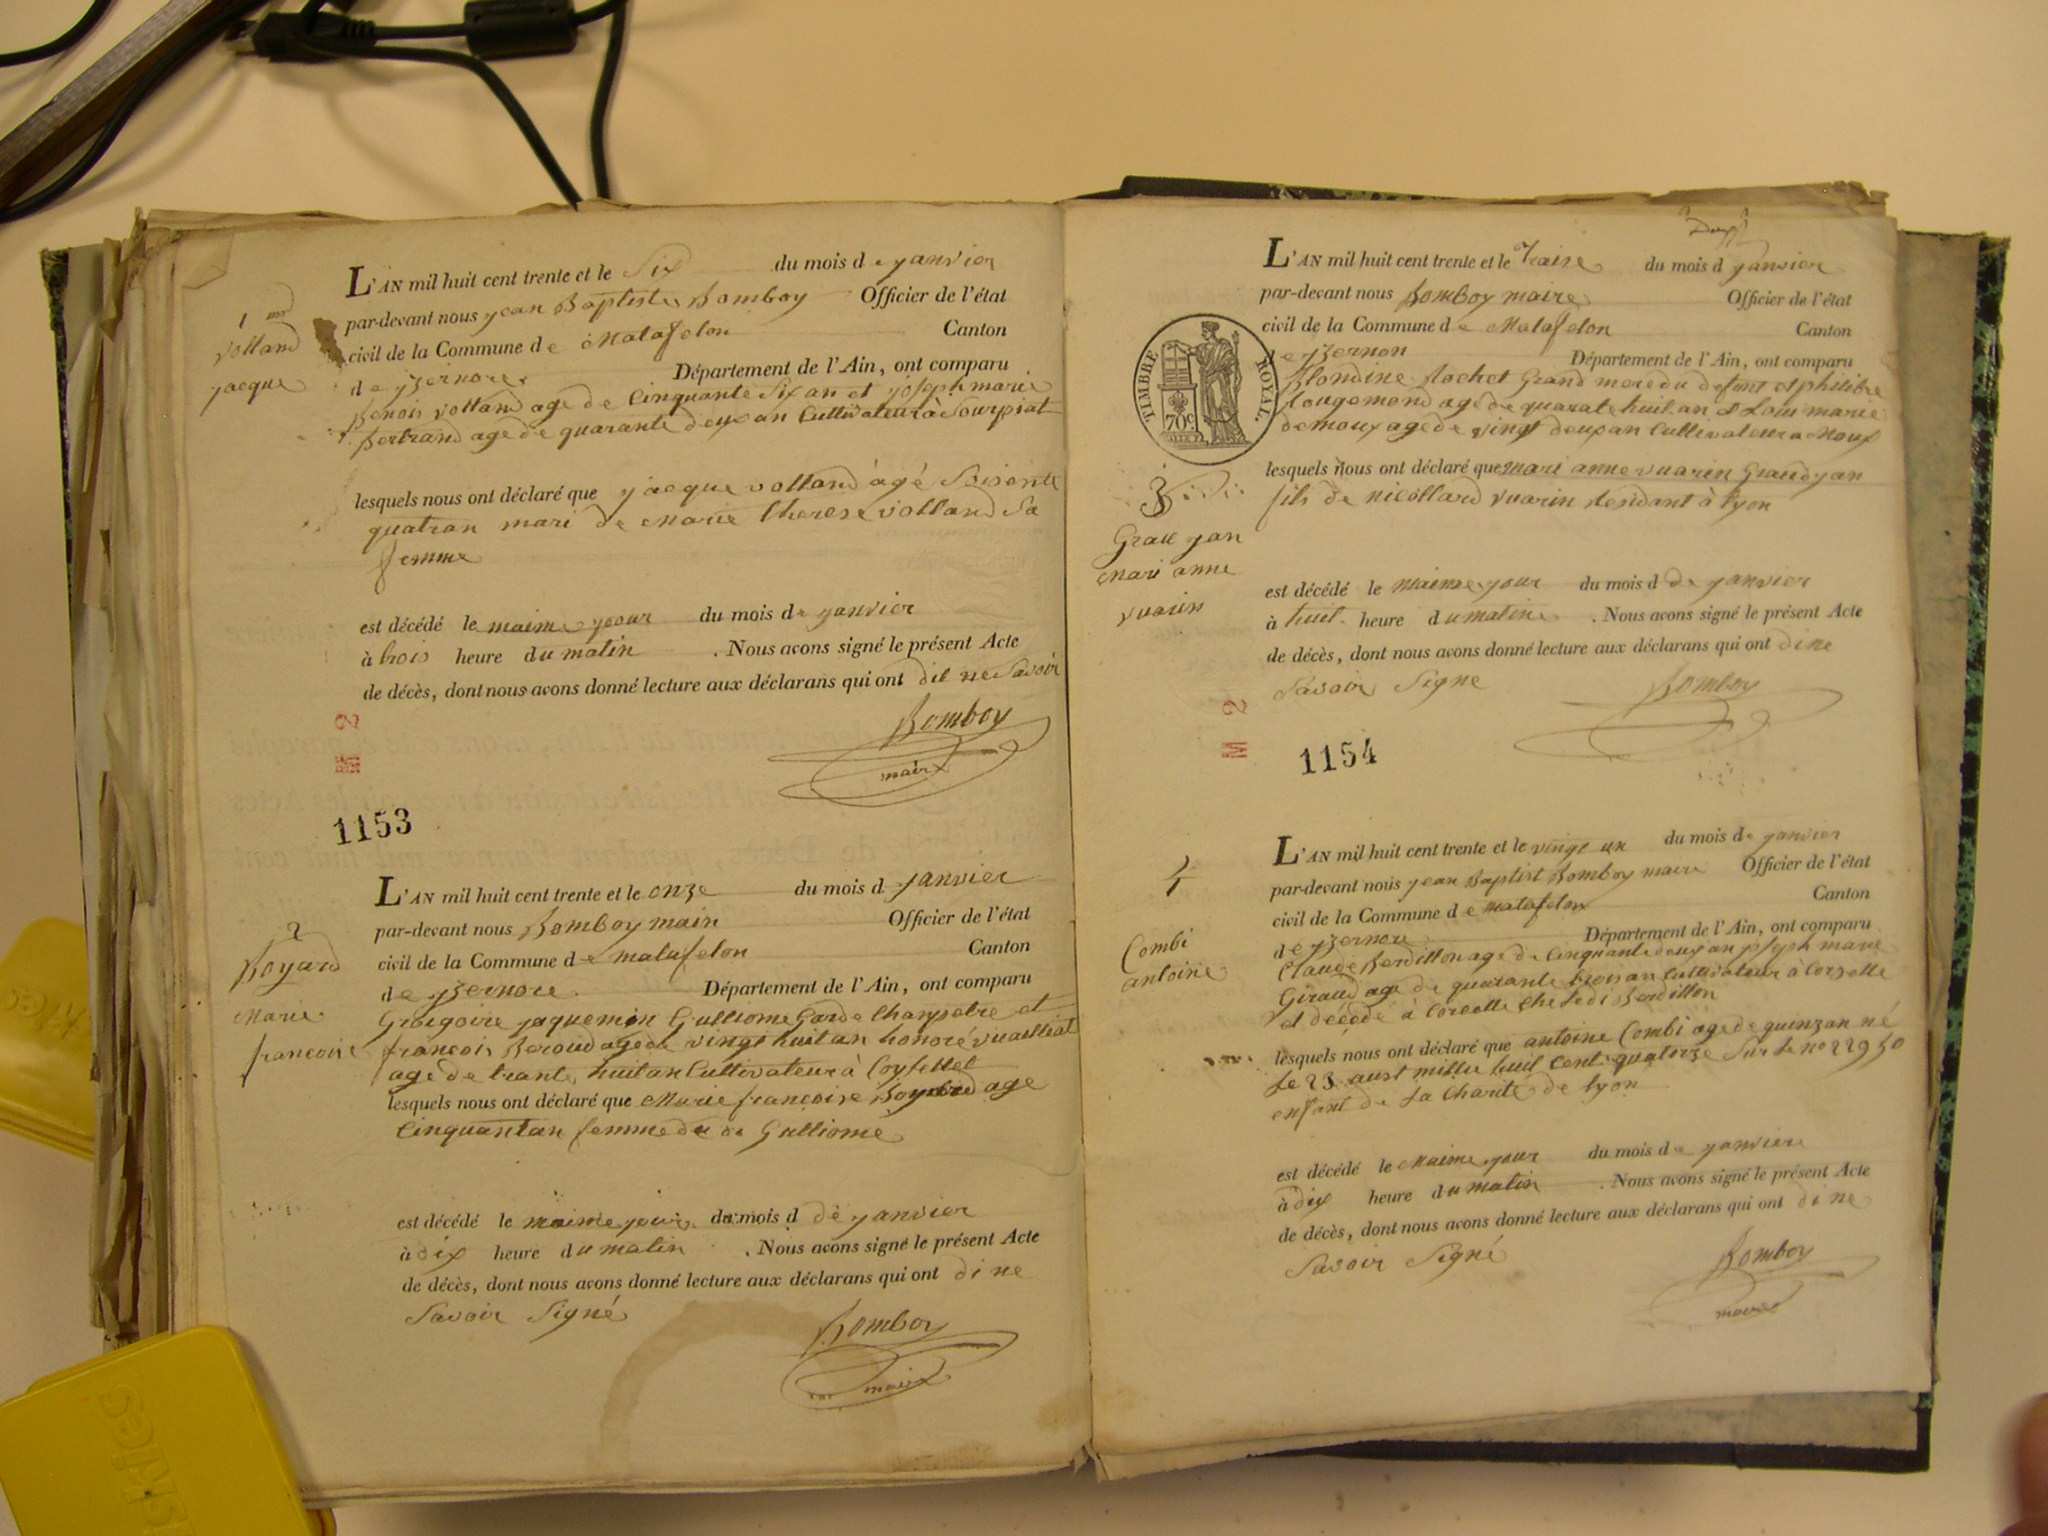 1
Volland
jacque
L'AN mil huit cent trente et le Six du mois de janvier
par-devant nous jean Baptiste Bomboy Officier de l'état
civil de la Commune de Matafelon Canton
d'yzernore Département de l'Ain, ont comparu
Benois volland age de Cinquante Six an et joseph marie
Bertrand age de quarante deux an Cultivateur à Courpiat
lesquels nous ont déclaré que jacque volland âgé Soisente
quatran mari de Marie therese volland Sa
femme
est décédé le maime jour du mois de janvier
à trois heure du matin . Nous avons signé le présent Acte
de décès, dont nous avons donné lecture aux déclarans qui ont dit ne Savoir
Bomboy
maire
M 2
1153
2
Boyard
Marie
francoise
L'AN mil huit cent trente et le onze du mois d janvier
par-devant nous Bomboy main Officier de l'état
civil de la Commune de matafelon Canton
d'yzernore Département de l'Ain, ont comparu
Groigoire jaquemin Gulliome Garde Champetre et
francois Beroud age de vingt huit an honoré vuailliat
age de trante huit an Cultivateur à Coysellet
lesquels nous ont déclaré que Marie francoise Boyard age
Cinquantan femme du di Gulliome
est décédé le maime jour du mois d de janvier
à dix heure du matin . Nous avons signé le présent Acte
de décès, dont nous avons donné lecture aux déclarans qui ont di ne
Savoir Signé
Bomboy
maire
L'AN mil huit cent trente et le traise du mois d janvier
par-devant nous Bomboy maire Officier de l'état
civil de la Commune de Matafelon Canton
d'yzernon Département de l'Ain, ont comparu
TIMBRE ROYAL.
70c.
Blondine Rochet Grand mere du defont et philibre
Rougemond age de quarate huit an & Loui marie
demoux age de vingt deux an Cultivateur a Noux
3
Grand jan
Mari anne
vuarin
lesquels nous ont déclaré que mari anne vuarin Grand jan
fils de nicollard vuarin Rendant à lyon
est décédé le maime jour du mois d de janvier
à huit heure du matin . Nous avons signé le présent Acte
de décès, dont nous avons donné lecture aux déclarans qui ont di ne
Savoir Signe
Bomboy
M 2
1154
4
Combi
antoine
L'AN mil huit cent trente et le vingt un du mois de janvier
par-devant nous jean Baptist Bomboy maire Officier de l'état
civil de la Commune de matafelon Canton
d'yzernore Département de l'Ain, ont comparu
Claude Berdillon age de Cinquante deux an joseph marie
Giraud age de quarante trois an Cultivateur à Corcelle
et décédé à Corcelle Che Ledi Berdillon
lesquels nous ont déclaré que antoine Combi age de quinzan né
Le 23 aust mille huit Cent quatorze Sur Le no 22950
enfant de La Charité de lyon
est décédé le Maime jour du mois de janvier
à dix heure du matin . Nous avons signé le présent Acte
de décès, dont nous avons donné lecture aux déclarans qui ont di ne
Savoir Signé
Bomboy
maire